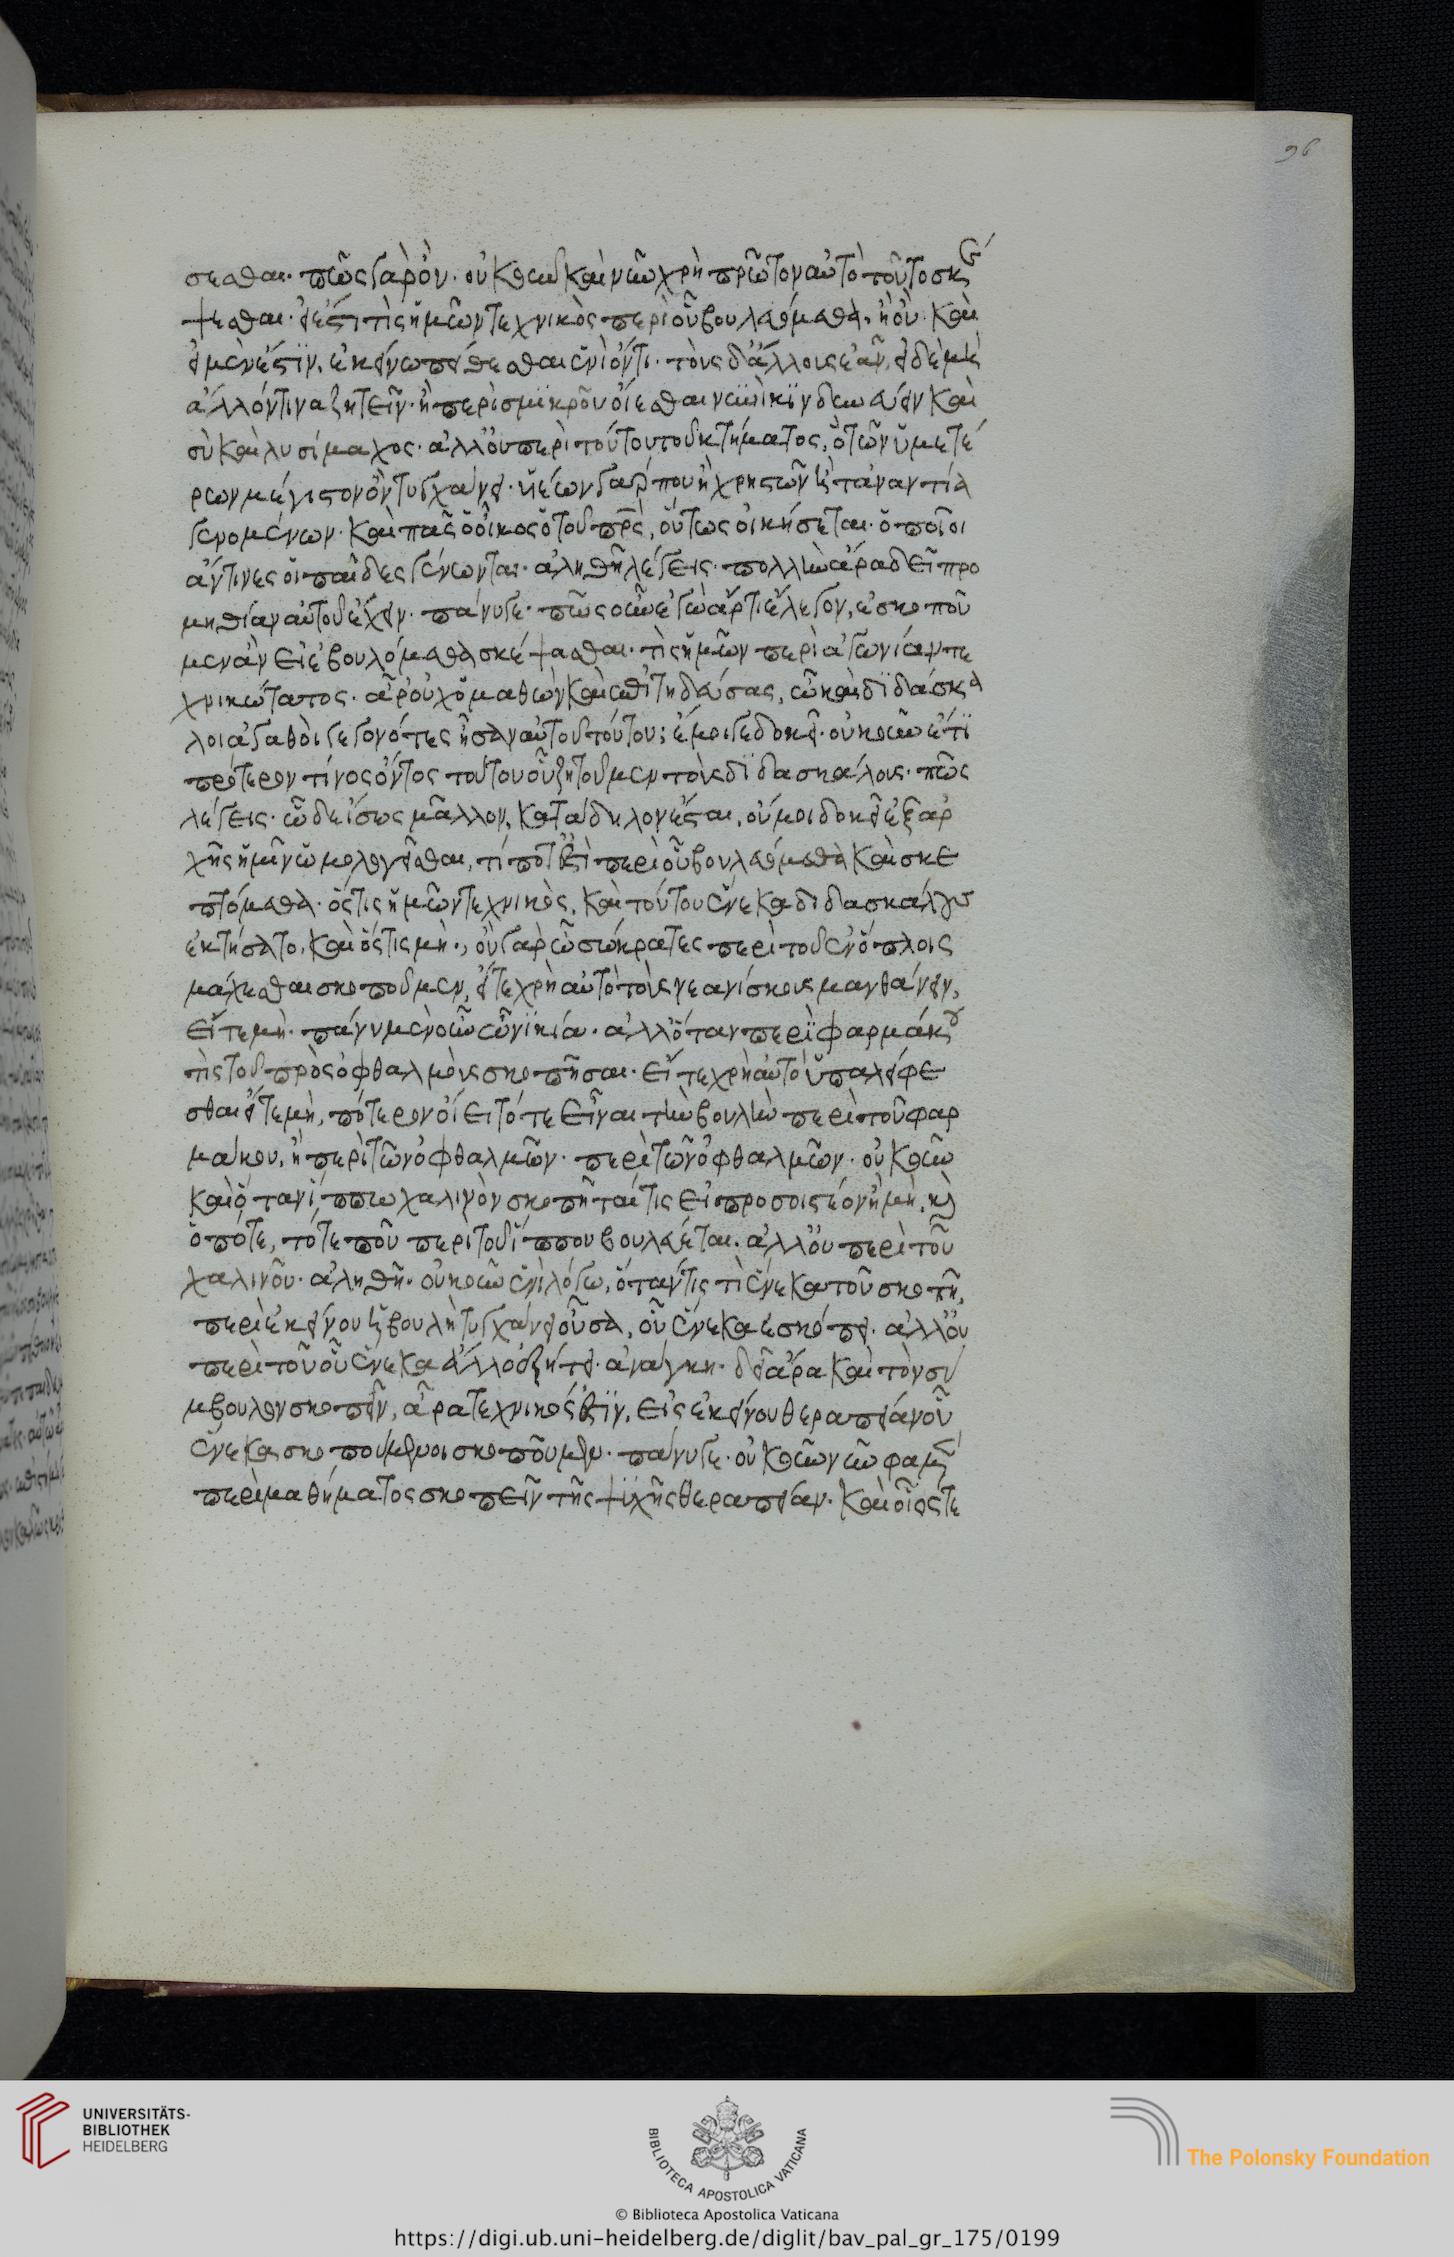 96
σεσθαι. πῶς γὰρ ὄν. οὐκοῦν καὶ νῦν χρὴ πρῶτον αὐτὸ τοῦτο σκέ
ψεσθαι. εἰ ἔστι τὶς ἡμῶν τεχνικὸς περὶ οὗ βουλευόμεθα, ἢ οὔ. καὶ
εἰ μὲν ἔστϊν, ἐκείνω πείθεσθαι ἑνὶ ὄντι. τοὺς δ' ἄλλους ἐᾶν. εἰ δὲ μὴ
ἄλλόν τινα ζητεῖν. ἢ περὶ σμϊκροῦ οἴεσθαι νυνὶ κϊνδυνεύειν καὶ
σὺ καὶ λυσίμαχος. ἀλλ' οὐ περὶ τούτου τοῦ κτήματος, ὃ τῶν ὑμετέ
ρων μέγιστον ὂν τυγχάνει. ὑιέων γάρ που ἢ χρηστῶν ἢ τἀναντία
γενομένων. καὶ πᾶς ὁ οἶκος ὁ τοῦ πρς, οὕτως οἰκήσεται. ὁποῖοι
ἄν τινες οἱ παῖδες γένωνται. ἀληθῆ λέγεις. πολλὴν ἄρα δεῖ προ
μηθίαν αὐτοῦ ἔχειν. πάνυ γε. πῶς οὖν ἐγὼ ἄρτι ἔλεγον, ἐσκοποῦ
μεν ἂν εἰ ἐβουλόμεθα σκέψασθαι. τὶς ἡμῶν περὶ ἀγωνίαν τε
χνικώτατος. ἆρ' οὐχ ὁ μαθὼν καὶ ἐπιτηδεύσας, ὧ καὶ δϊδάσκα
λοι ἀγαθοὶ γεγονότες ἦσαν αὐτοῦ τούτου; ἐμοι γε δοκεῖ. οὐκοῦν ἔτϊ
πρότερον τίνος ὄντος τούτου οὗ ζητοῦμεν τοὺς δϊδασκάλους. πῶς
λέγεις. ὧδε ἴσως μᾶλλον, κατάδηλον ἔσται, οὔ μοι δοκεῖ ἐξ ἀρ
χῆς ἡμῖν ὡμολογεῖσθαι, τί ποτ' ἐστὶ περὶ οὗ βουλευόμεθα καὶ σκε
πτόμεθα. ὅστις ἡμῶν τεχνικὸς, καὶ τούτου ἕνεκα διδασκάλους
ἐκτήσατο, καὶ ὅστις μὴ., οὐ γὰρ ὦ σώκρατες περὶ τοῦ ἐν ὅπλοις
μάχεσθαι σκοποῦμεν, εἴτε χρὴ αὐτὸ τοὺς νεανίσκους μανθάνειν,
εἴτε μὴ. πάνυ μὲν οὖν ὦ νϊκία. ἀλλ' ὅταν περὶ φαρμάκου
τὶς τοῦ πρὸς ὀφθαλμοὺς σκοπῆται. εἴ τε χρὴ αὐτὸ ὑπαλείφε
σθαι εἴτε μὴ, πότερον οἴει τότε εἶναι τὴν βουλὴν περὶ τοῦ φαρ
μάκου, ἢ περὶ τῶν ὀφθαλμῶν. περὶ τῶν ὀφθαλμῶν. οὐκοῦν
καὶ ὅταν ἵππω χαλινὸν σκοπῆταί τις εἰ προσοιστέον ἢ μὴ, κὶ
ὁπότε, τότε που περὶ τοῦ ἵππου βουλεύεται. ἀλλ' οὐ περὶ τοῦ
χαλινοῦ. ἀληθῆ. οὐκοῦν ἑνὶ λόγω, ὅταν τις τὶ ἕνεκα του σκοπῆ,
περὶ ἐκείνου ἡ βουλὴ τυγχάνει οὖσα, οὗ ἕνεκα ἐσκόπει. ἀλλ' οὐ
περὶ τοῦ οὗ ἕνεκα ἄλλο ἐζήτει. ἀνάγκη. δεῖ ἄρα καὶ τὸν σύ
μβουλον σκοπεῖν, ἆρα τεχνικός ἐστϊν, εἰς ἐκείνου θεραπείαν οὗ
ἕνεκα σκοπούμενοι σκοποῦμεν. πάνυ γε. οὐκοῦν νῦν φαμὲν
περὶ μαθήματος σκοπεῖν τῆς ψϋχῆς θεραπείαν. καὶ οἷός τε
UNIVERSITÄTS-
BIBLIOTHEK
HEIDELBERG
BIBLIOTECA APOSTOLICA VATICANA
The Polonsky Foundation
© Biblioteca Apostolica Vaticana
https://digi.ub.uni-heidelberg.de/diglit/bav_pal_gr_175/0199